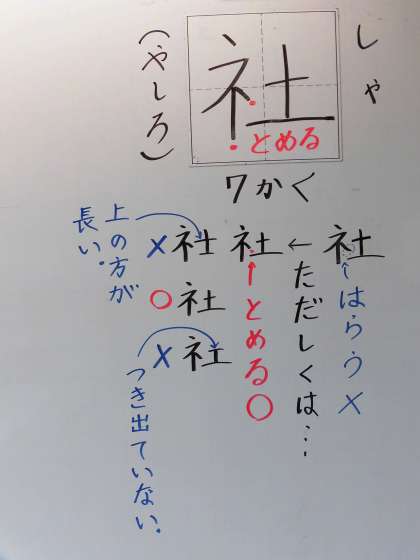 しゃ
社
とめる
(やしろ)
7かく
社
はらう×
←ただしくは…
社
↑とめる○
×社
○社
×社
上の方が
長い。
つき出ていない。